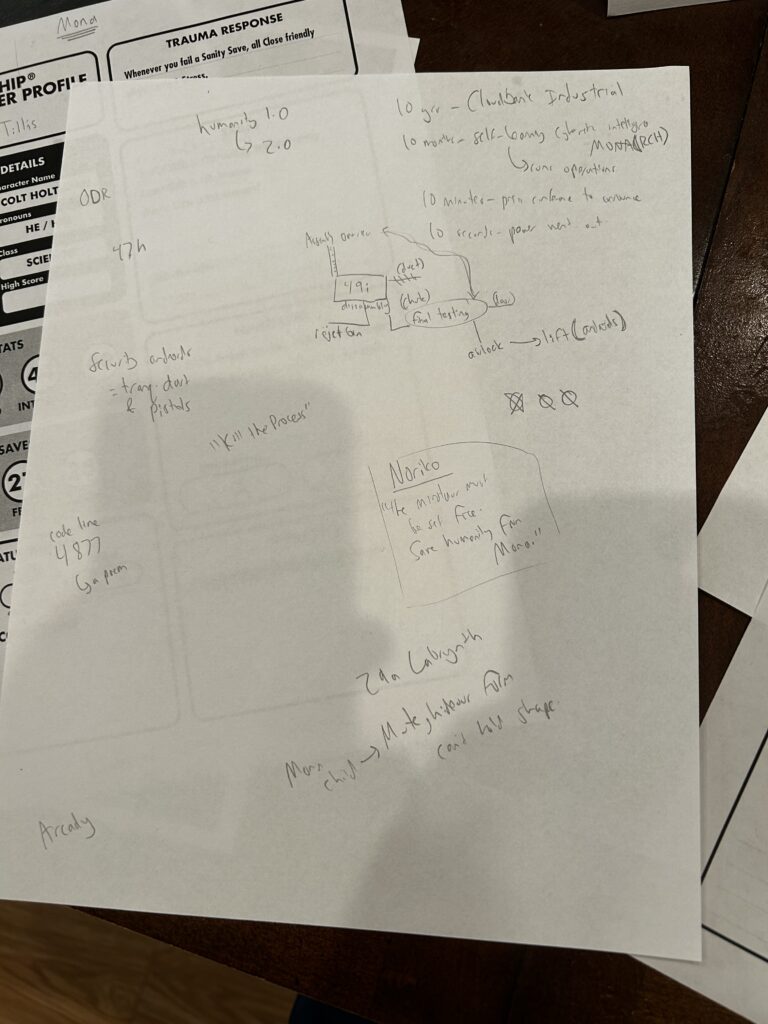 Mona
TRAUMA RESPONSE
Whenever you fail a Sanity Save, all Close friendly
HIP®
ER PROFILE
Tillis
DETAILS
aracter Name
COLT HOLT
ronouns
HE / H
Class
SCIE
High Score
TATS
INT
SAVE
2
humanity 1.0
↳ 2.0
10 year – Cloudbank Industrial
10 months – self-learning
MONA(RCH)
↳ runs operations
10 minutes – press conference to announce
10 seconds – power went out
ODR
47h
Assembly
49i
(duct)
disassembly
(chute)
final testing
rejection
airlock → lift (androids)
Security androids
= tranq. dart
& pistols
"Kill the Process"
Noriko
"The minotaur must
be set free.
Save humanity from
Mona."
code line
4877
↳ a poem
29a Labrynth
Mona child →
form
can't hold shape
Arcady